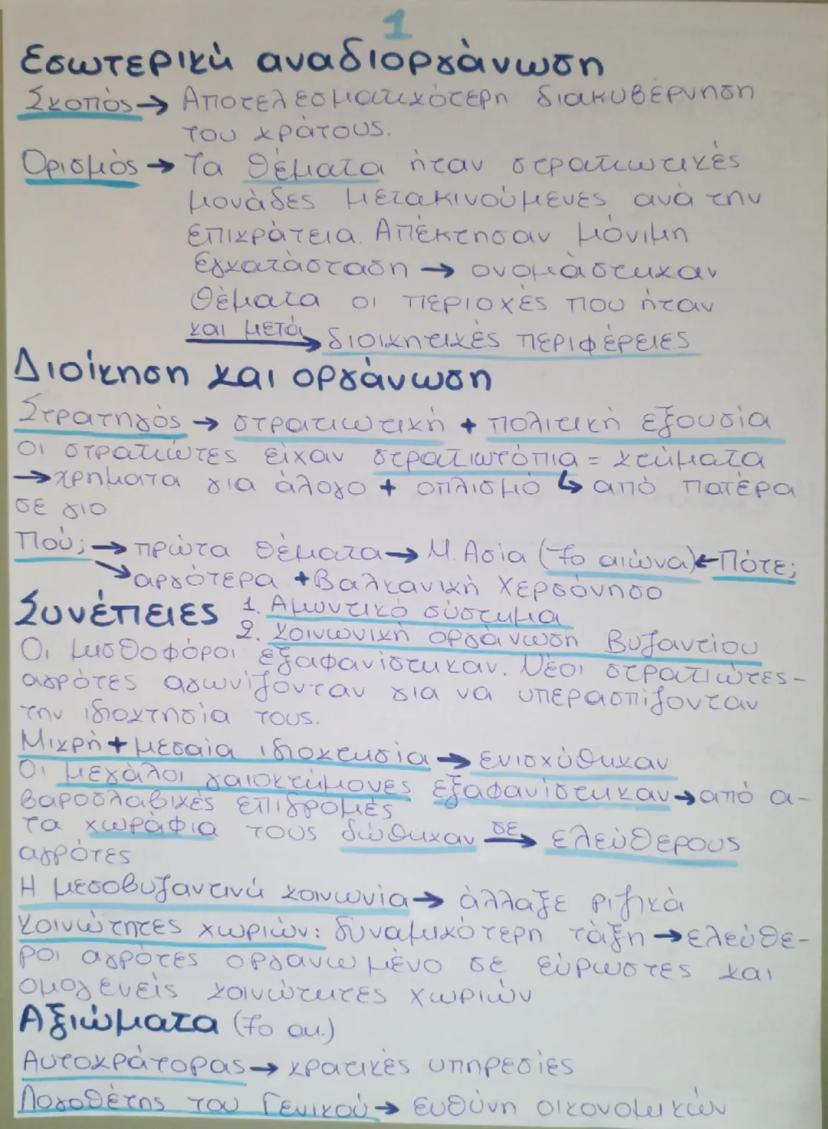 1
Εσωτερική αναδιοργάνωση
Σκοπός → Αποτελεσματικότερη διακυβέρνηση
του κράτους.
Ορισμός → Τα θέματα ήταν στρατιωτικές
μονάδες μετακινούμενες ανά την
επικράτεια. Απέκτησαν μόνιμη
εγκατάσταση → ονομάστηκαν
θέματα οι περιοχές που ήταν
και μετά → διοικητικές περιφέρειες
Διοίκηση και οργάνωση
Στρατηγός → στρατιωτική + πολιτική εξουσία
Οι στρατιώτες είχαν στρατιωτόπια = κτήματα
→ χρήματα για άλογο + οπλισμό ↳ από πατέρα
σε γιο
Πού; → πρώτα θέματα → Μ. Ασία (7ο αιώνα) ← Πότε;
→ αργότερα + Βαλκανική Χερσόνησο
Συνέπειες 1. Αμυντικό σύστημα
2. Κοινωνική οργάνωση Βυζαντίου
Οι μισθοφόροι εξαφανίστηκαν. Νέοι στρατιώτες-
αγρότες αγωνίζονταν για να υπερασπίζονταν
την ιδιοκτησία τους.
Μικρή + μεσαία ιδιοκτησία → ενισχύθηκαν
Οι μεγάλοι γαιοκτήμονες εξαφανίστηκαν → από α-
βαροσλαβικές επιδρομές
τα χωράφια τους δώθηκαν σε → ελεύθερους
αγρότες
Η μεσοβυζαντινή κοινωνία → άλλαξε ριζικά
Κοινώτητες χωριών: δυναμικότερη τάξη → ελεύθε-
ροι αγρότες οργανωμένο σε εύρωστες και
ομογενείς κοινώτητες χωριών
Αξιώματα (7ο αι.)
Αυτοκράτορας → κρατικές υπηρεσίες
Λογοθέτης του Γενικού → ευθύνη οικονομικών